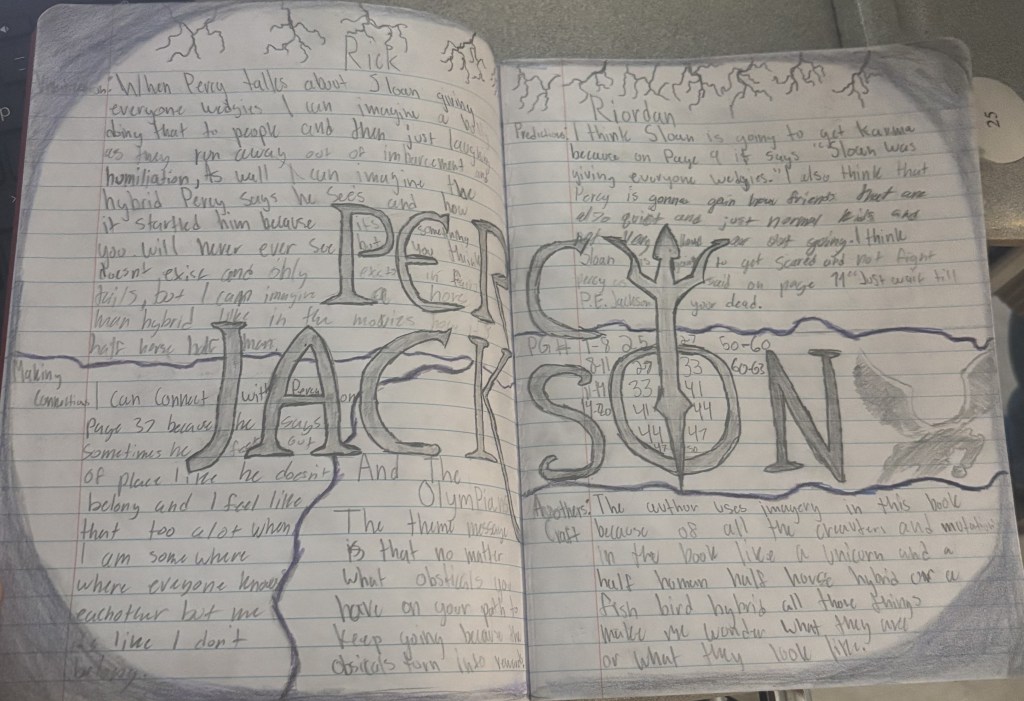 Rick
When Percy talks about Sloan giving
everyone wedgies I can imagine a
doing that to people and then just
as they run away out of imbarcement
humiliation, As well I can imagine the
hybrid Percy says he sees and how
it startled him because its something
you will never ever see but you think
doesn't exist and only in fairy
tails, but I can imagine a horse
man hybrid like in the movies
half horse half man.
PERCY
JACKSON
Making
Connection: I can connect with Percy on
page 37 because he says
sometimes he feels out
of place like he doesn't
belong and I feel like
that too alot when
I am some where
where everyone knows
eachother but me
I don't
belong.
And The
Olympians
The theme message
is that no matter
what obsticals you
have on your path to
keep going because the
obsicals turn into rewards
Riordan
Predictions: I think Sloan is going to get karma
because on Page 9 it says "Sloan was
giving everyone wedgies." I also think that
Percy is gonna gain new friends that are
also quiet and just normal kids and
going. I think
Sloan is to get scared and not fight
percy on page 11 "Just wait till
P.E. Jackson your dead.
PG# 1-8 25 50-60
8-11 27 33 60-63
11-14 33 41
14-20 41 44
44 47
47 50
Aouthers
Craft: The author uses imagery in this book
because of all the creauters and mutation
in the book like a unicorn and a
half human half horse hybrid or a
fish bird hybrid all those things
make me wonder what they are
or what they look like.
25